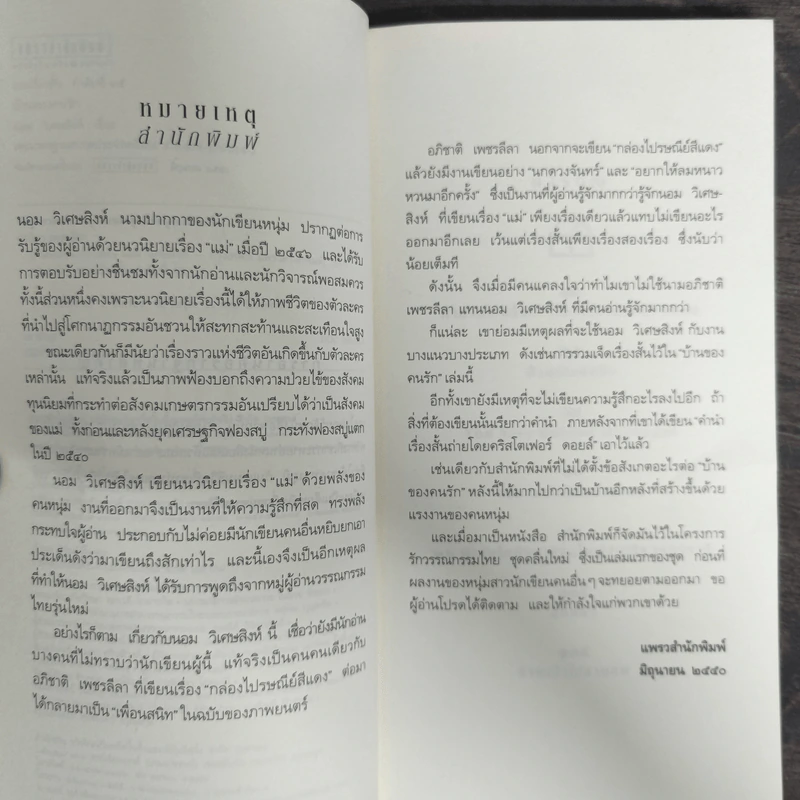 หมายเหตุ
สำนักพิมพ์
นอม วิเศษสิงห์ นามปากกาของนักเขียนหนุ่ม ปรากฏต่อการ
รับรู้ของผู้อ่านด้วยนวนิยายเรื่อง “แม่” เมื่อปี ๒๕๔๖ และได้รับ
การตอบรับอย่างชื่นชมทั้งจากนักอ่านและนักวิจารณ์พอสมควร
ทั้งนี้ส่วนหนึ่งคงเพราะนวนิยายเรื่องนี้ได้ให้ภาพชีวิตของตัวละคร
ที่นำไปสู่โศกนาฏกรรมอันชวนให้สะทกสะท้านและสะเทือนใจสูง
ขณะเดียวกันก็มีนัยว่าเรื่องราวแห่งชีวิตอันเกิดขึ้นกับตัวละคร
เหล่านั้น แท้จริงแล้วเป็นภาพฟ้องบอกถึงความป่วยไข้ของสังคม
ทุนนิยมที่กระทำต่อสังคมเกษตรกรรมอันเปรียบได้ว่าเป็นสังคม
ของแม่ ทั้งก่อนและหลังยุคเศรษฐกิจฟองสบู่ กระทั่งฟองสบู่แตก
ในปี ๒๕๔๐
นอม วิเศษสิงห์ เขียนนวนิยายเรื่อง “แม่” ด้วยพลังของ
คนหนุ่ม งานที่ออกมาจึงเป็นงานที่ให้ความรู้สึกที่สด ทรงพลัง
กระทบใจผู้อ่าน ประกอบกับไม่ค่อยมีนักเขียนคนอื่นหยิบยกเอา
ประเด็นดังว่ามาเขียนถึงสักเท่าไร และนี้เองจึงเป็นอีกเหตุผล
ที่ทำให้นอม วิเศษสิงห์ ได้รับการพูดถึงจากหมู่ผู้อ่านวรรณกรรม
ไทยรุ่นใหม่
อย่างไรก็ตาม เกี่ยวกับนอม วิเศษสิงห์ นี้ เชื่อว่ายังมีนักอ่าน
บางคนที่ไม่ทราบว่านักเขียนผู้นี้ แท้จริงเป็นคนคนเดียวกับ
อภิชาติ เพชรลีลา ที่เขียนเรื่อง “กล่องไปรษณีย์สีแดง” ต่อมา
ได้กลายมาเป็น “เพื่อนสนิท” ในฉบับของภาพยนตร์
อภิชาติ เพชรลีลา นอกจากจะเขียน “กล่องไปรษณีย์สีแดง”
แล้วยังมีงานเขียนอย่าง “นกดวงจันทร์” และ “อยากให้ลมหนาว
หวนมาอีกครั้ง” ซึ่งเป็นงานที่ผู้อ่านรู้จักมากกว่ารู้จักนอม วิเศษ-
สิงห์ ที่เขียนเรื่อง “แม่” เพียงเรื่องเดียวแล้วแทบไม่เขียนอะไร
ออกมาอีกเลย เว้นแต่เรื่องสั้นเพียงเรื่องสองเรื่อง ซึ่งนับว่า
น้อยเต็มที
ดังนั้น จึงเมื่อมีคนแคลงใจว่าทำไมเขาไม่ใช้นามอภิชาติ
เพชรลีลา แทนนอม วิเศษสิงห์ ที่มีคนอ่านรู้จักมากกว่า
ก็แน่ละ เขาย่อมมีเหตุผลที่จะใช้นอม วิเศษสิงห์ กับงาน
บางแนวบางประเภท ดังเช่นการรวมเจ็ดเรื่องสั้นไว้ใน “บ้านของ
คนรัก” เล่มนี้
อีกทั้งเขายังมีเหตุที่จะไม่เขียนความรู้สึกอะไรลงไปอีก ถ้า
สิ่งที่ต้องเขียนนั้นเรียกว่าคำนำ ภายหลังจากที่เขาได้เขียน “คำนำ
เรื่องสั้นถ่ายโดยคริสโตเฟอร์ ดอยล์” เอาไว้แล้ว
เช่นเดียวกับสำนักพิมพ์ที่ไม่ได้ตั้งข้อสังเกตอะไรต่อ “บ้าน
ของคนรัก” หลังนี้ให้มากไปกว่าเป็นบ้านอีกหลังที่สร้างขึ้นด้วย
แรงงานของคนหนุ่ม
และเมื่อมาเป็นหนังสือ สำนักพิมพ์ก็จัดมันไว้ในโครงการ
รักวรรณกรรมไทย ชุดคลื่นใหม่ ซึ่งเป็นเล่มแรกของชุด ก่อนที่
ผลงานของหนุ่มสาวนักเขียนคนอื่น ๆ จะทยอยตามออกมา ขอ
ผู้อ่านโปรดได้ติดตาม และให้กำลังใจแก่พวกเขาด้วย
แพรวสำนักพิมพ์
มิถุนายน ๒๕๕๐